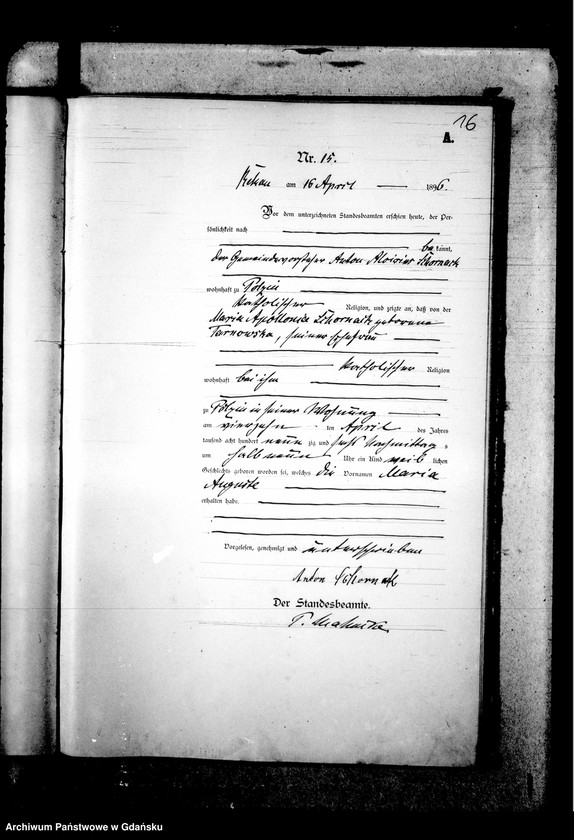 16
A.
Nr. 15.
am 16 April 1896.
Vor dem unterzeichneten Standesbeamten erschien heute, der Per-
sönlichkeit nach
be kannt,
der Gemeindevorsteher Anton Aloisius Schornack
wohnhaft zu Polzin
katholischer Religion, und zeigte an, daß von der
Maria Apollonia Schornack geborene
Tarnowska, seiner Ehefrau
katholischer Religion
wohnhaft bei ihm
zu Polzin in seiner Wohnung
am vierzehn ten April des Jahres
tausend acht hundert neun zig und sechs Nachmittag s
um halb neun Uhr ein Kind weib lichen
Geschlechts geboren worden sei, welches die Vornamen Maria
Auguste
erhalten habe.
Vorgelesen, genehmigt und unterschrieben
Anton Schornack
Der Standesbeamte.
Archiwum Państwowe w Gdańsku